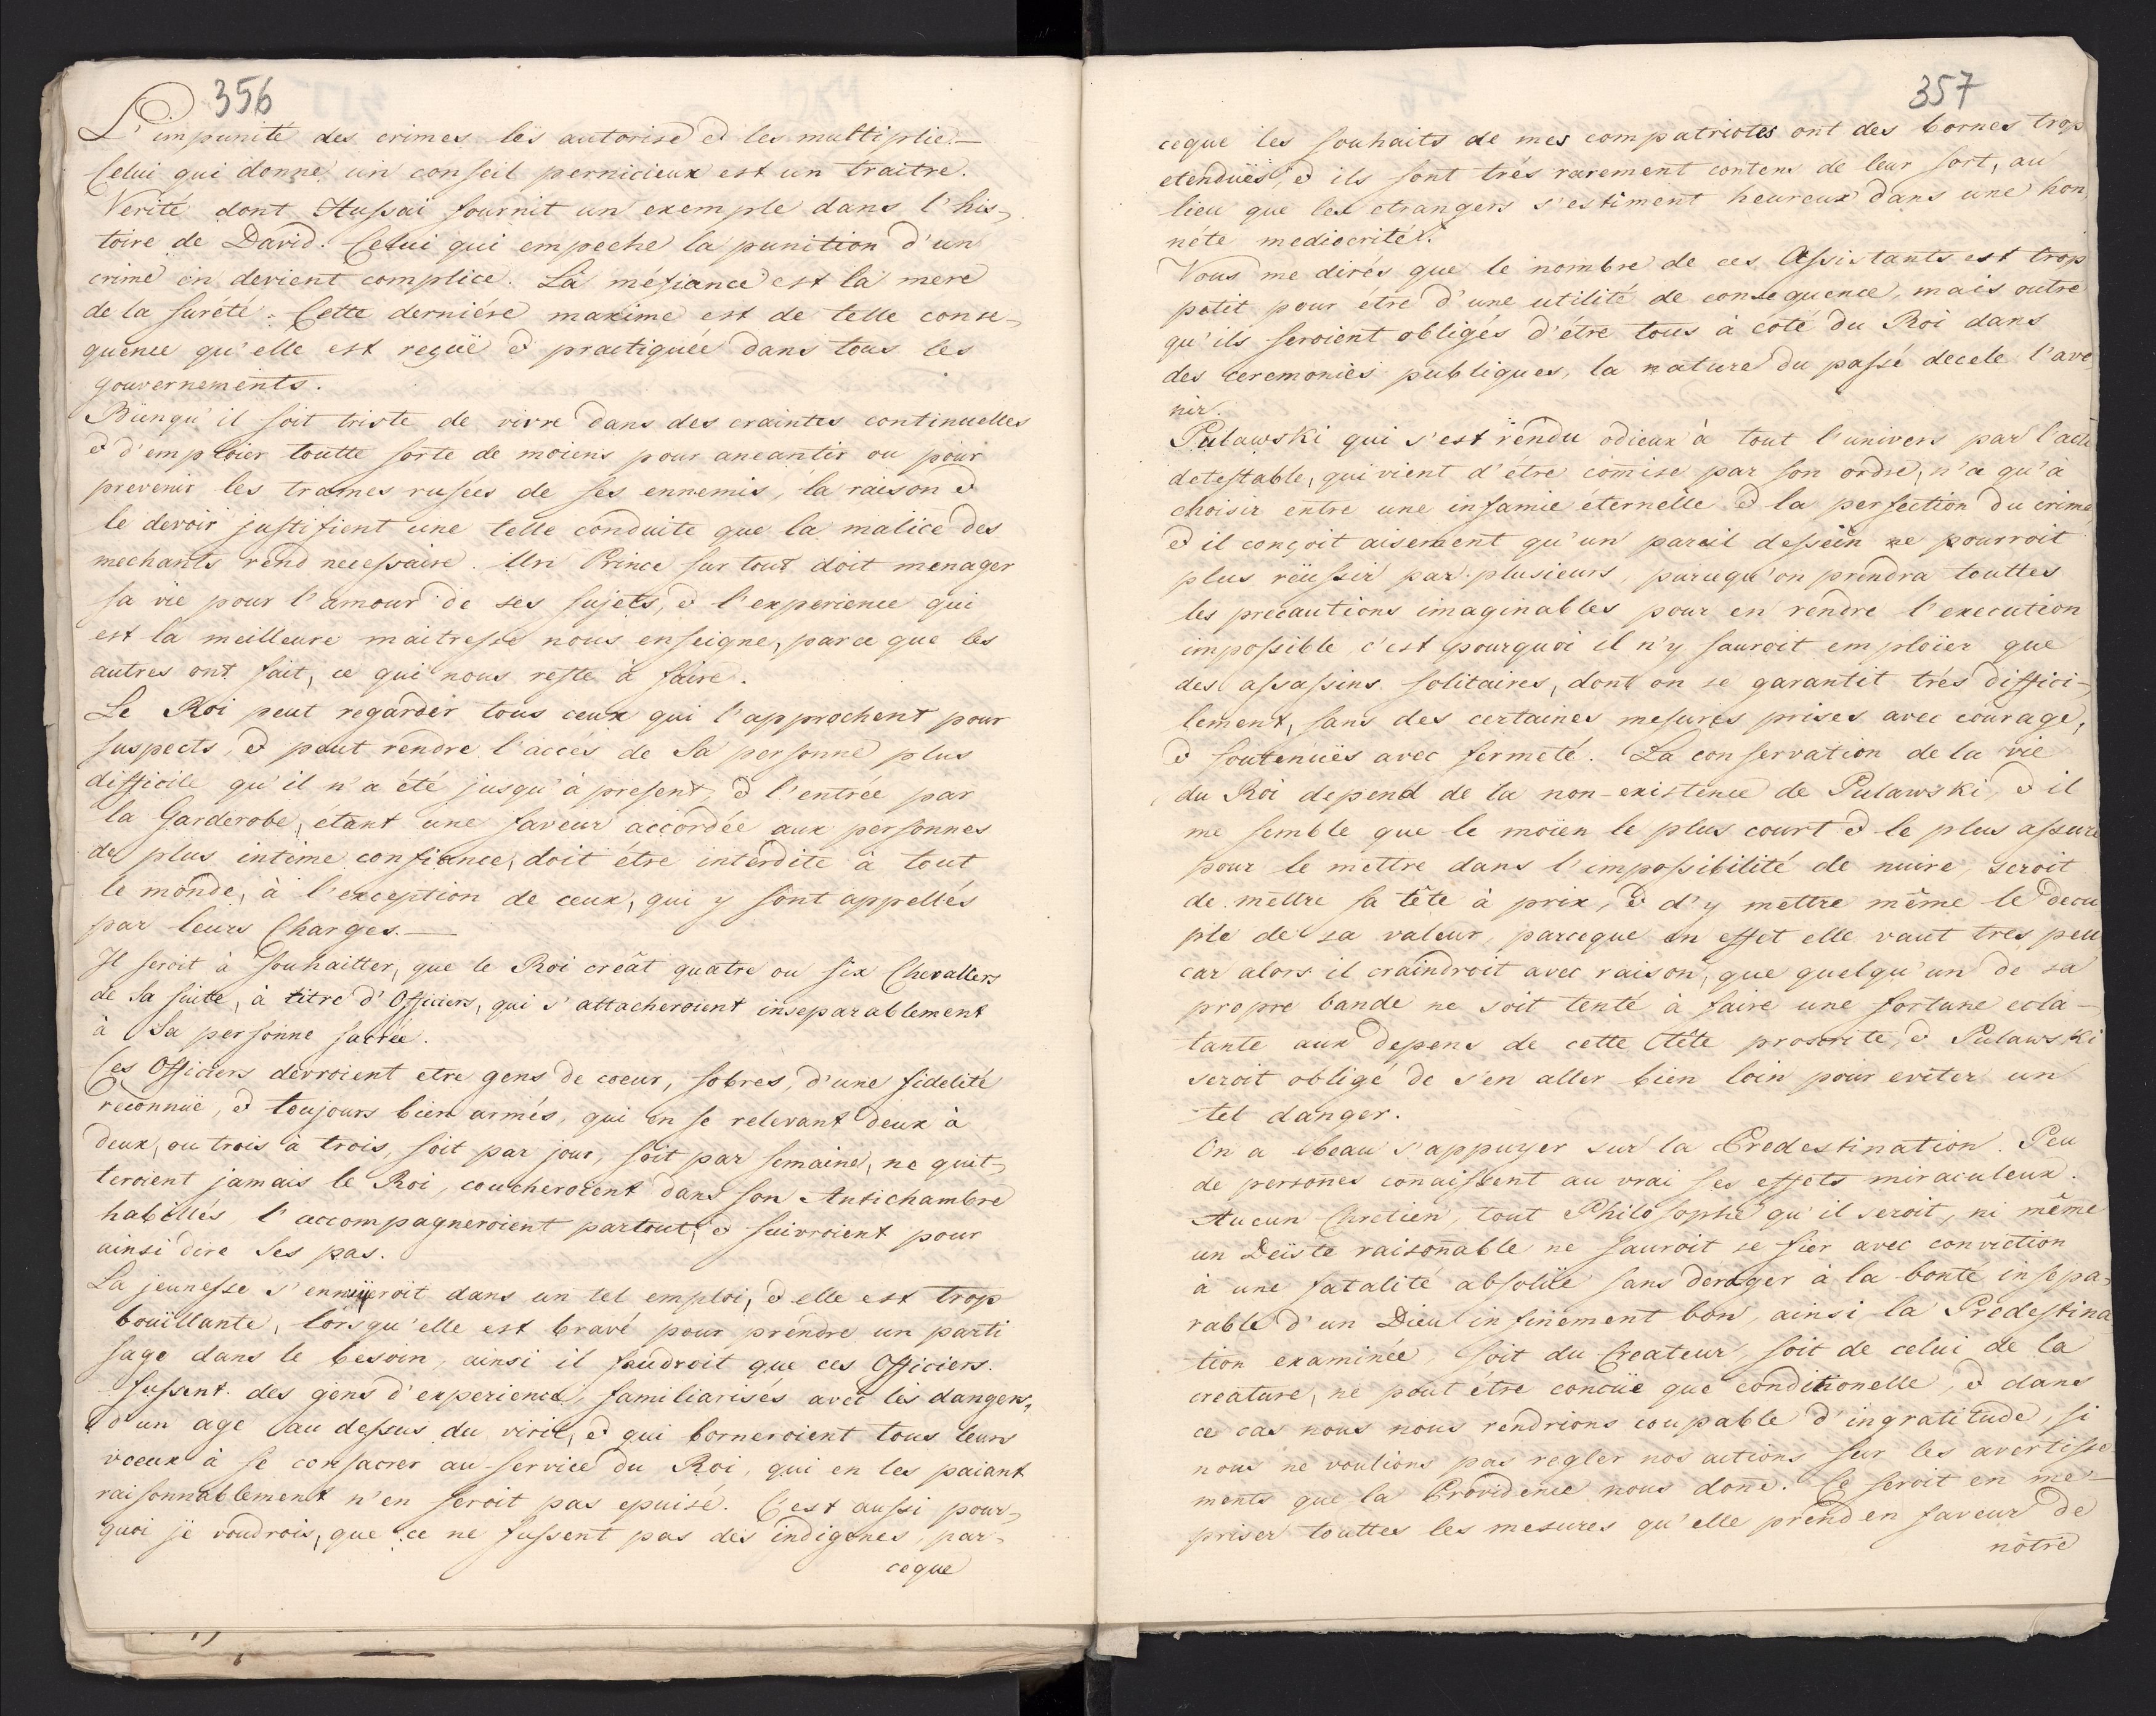 356
L'impunité des crimes les autorise et les multiplie.—
Celui qui donne un conseil pernicieux est un traitre.
Verité dont Hussaï fournit un exemple dans l'his-
toire de David. Celui qui empeche la punition d'un
crime en devient complice. La méfiance est la mere
de la sureté. Cette derniére maxime est de telle conse-
quence qu'elle est reçuë et practiquée dans tous les
gouvernements.
Bienqu'il soit triste de vivre dans des craintes continuelles
et d'emploier toutte sorte de moiens pour aneantir ou pour
prevenir les trames rusées de ses ennemis, la raison et
le devoir justifient une telle conduite que la malice des
mechants rend necessaire. Un Prince sur tout doit menager
sa vie pour l'amour de ses sujets, et l'experience qui
est la meilleure maitresse nous enseigne, par ce que les
autres ont fait, ce qui nous reste à faire.
Le Roi peut regarder tous ceux qui l'approchent pour
suspects, et peut rendre l'accés de Sa personne plus
difficile qu'il n'a été jusqu'à present, et l'entrée par
la Garderobe, étant une faveur accordée aux personnes
de plus intime confiance, doit étre interdite à tout
le monde, à l'exception de ceux, qui y sont appellés
par leurs Charges.—
Il seroit à souhaitter, que le Roi créât quatre ou six Chevallers
de Sa suitte, à titre d'Officiers, qui s'attacheroient inseparablement
à Sa personne sacrée.
Ces Officiers devroient etre gens de coeur, sobres, d'une fidelité
reconnuë, et toujours bien armés, qui en se relevant deux à
deux, ou trois à trois, soit par jour, soit par semaine, ne quit-
teroient jamais le Roi, coucheroient dans son Antichambre
habillés, l'accompagneroient partout, et suivroient pour
ainsi dire Ses pas.
La jeunesse s'ennuyeroit dans un tel emploi, et elle est trop
bouïllante, lorsqu'elle est brave pour prendre un parti
sage dans le besoin, ainsi il faudroit que ces Officiers
fussent des gens d'experience, familiarisés avec les dangers,
d'un age au dessus du viril, et qui borneroient tous leurs
voeux à se consacrer au service du Roi, qui en les paiant
raisonnablement n'en seroit pas epuisé. C'est aussi pour-
quoi je voudrois, que ce ne fussent pas des indigenes, par-
ceque
357
ceque les souhaits de mes compatriotes ont des bornes trop
etenduës, et ils sont trés rarement contens de leur sort, au
lieu que les etrangers s'estiment heureux dans une hon-
néte mediocrité.
Vous me dirés que le nombre de ces Assistants est trop
petit pour étre d'une utilité de consequence, mais outre
qu'ils seroient obligés d'étre tous à coté du Roi dans
des ceremonies publiques, la nature du passé decele l'ave-
nir.
Pulawski qui s'est rendu odieux à tout l'univers par l'acte
detestable, qui vient d'étre comise par son ordre, n'a qu'à
choisir entre une infamie éternelle et la perfection du crime
et il conçoit aisement qu'un pareil dessein ne pourroit
plus reüssir par plusieurs, parcequ'on prendra touttes
les precautions imaginables pour en rendre l'execution
impossible, c'est pourquoi il n'y sauroit emploïer que
des assassins solitaires, dont on se garantit trés diffici-
lement, sans des certaines mesures prises avec courage,
et soutenuës avec fermeté. La conservation de la vie
du Roi depend de la non-existence de Pulawski, et il
me semble que le moïen le plus court et le plus assuré
pour le mettre dans l'impossibilité de nuire, seroit
de mettre sa tête à prix, et d'y mettre même le decu-
ple de sa valeur, parceque en effet elle vaut tres peu
car alors il craindroit avec raison, que quelqu'un de sa
propre bande ne soit tenté à faire une fortune ecla-
tante aux depens de cette tête proscrite, et Pulawski
seroit obligé de s'en aller bien loin pour eviter un
tel danger.
On a beau s'appuyer sur la Predestination. Peu
de persones conaissent au vrai ses effets miraculeux.
Aucun Chretien, tout Philosophe qu'il seroit, ni même
un Deïste raisonable ne sauroit se fier avec conviction
à une fatalité absolüe sans deroger à la bonté insepa-
rable d'un Dieu infiniment bon, ainsi la Predestina
tion examinée, soit du Createur, soit de celui de la
creature, ne peut étre concüe que conditionelle, et dans
ce cas nous nous rendrions coupable d'ingratitude, si
nous ne voulions pas regler nos actions sur les avertisse-
ments que la Providence nous done. Ce seroit en mé-
priser touttes les mesures qu'elle prend en faveur de
nôtre